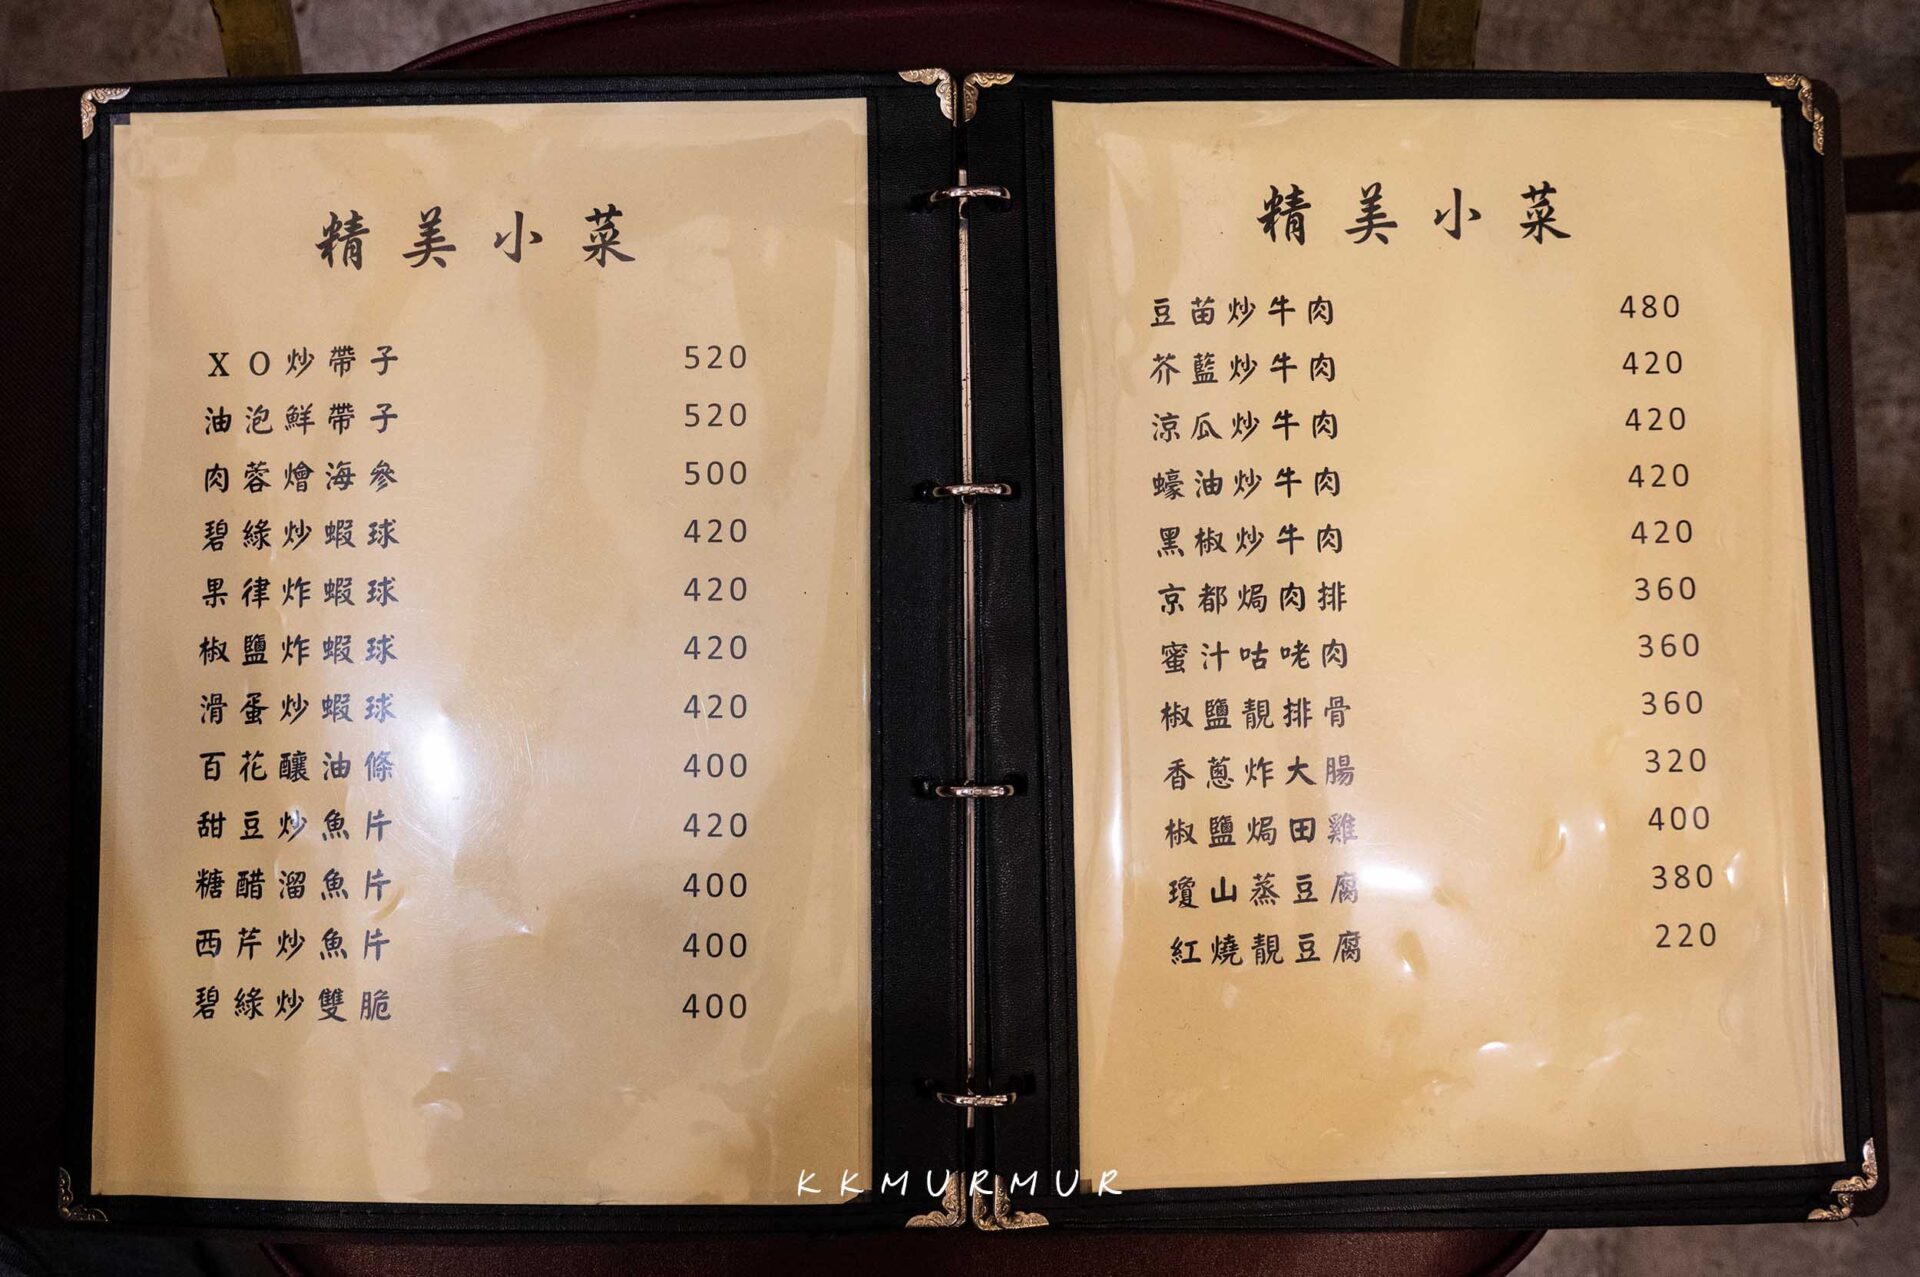 精美小菜
XO炒帶子 520
油泡鮮帶子 520
肉蓉燴海參 500
碧綠炒蝦球 420
果律炸蝦球 420
椒鹽炸蝦球 420
滑蛋炒蝦球 420
百花釀油條 400
甜豆炒魚片 420
糖醋溜魚片 400
西芹炒魚片 400
碧綠炒雙脆 400
精美小菜
豆苗炒牛肉 480
芥藍炒牛肉 420
涼瓜炒牛肉 420
蠔油炒牛肉 420
黑椒炒牛肉 420
京都焗肉排 360
蜜汁咕咾肉 360
椒鹽靚排骨 360
香蔥炸大腸 320
椒鹽焗田雞 400
瓊山蒸豆腐 380
紅燒靚豆腐 220
KKMURMUR